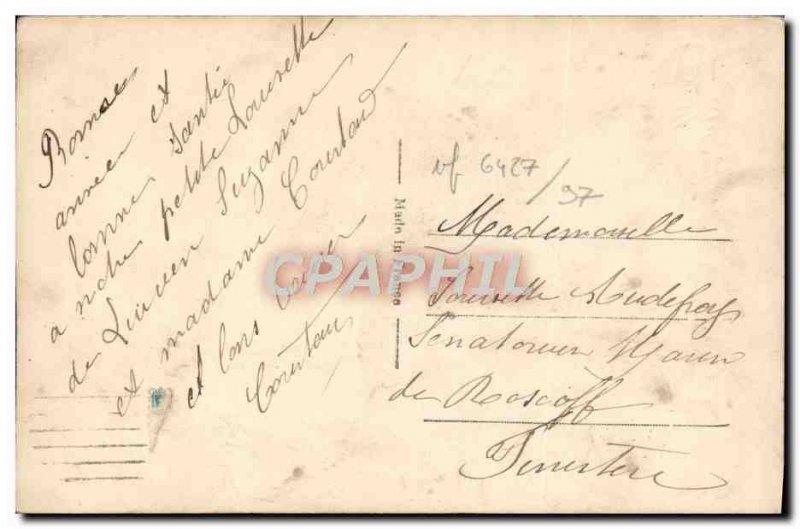 Bonne
année et
bonne santé
a notre petite Lousette
de Lucien Suzanne
et madame Courtaud
et bons baiser
Courtau
Made in France
CPAPHIL
nf 6427/97
Mademoiselle
Lousette Audefroy
Senatorium Marin
de Roscoff
Finistère